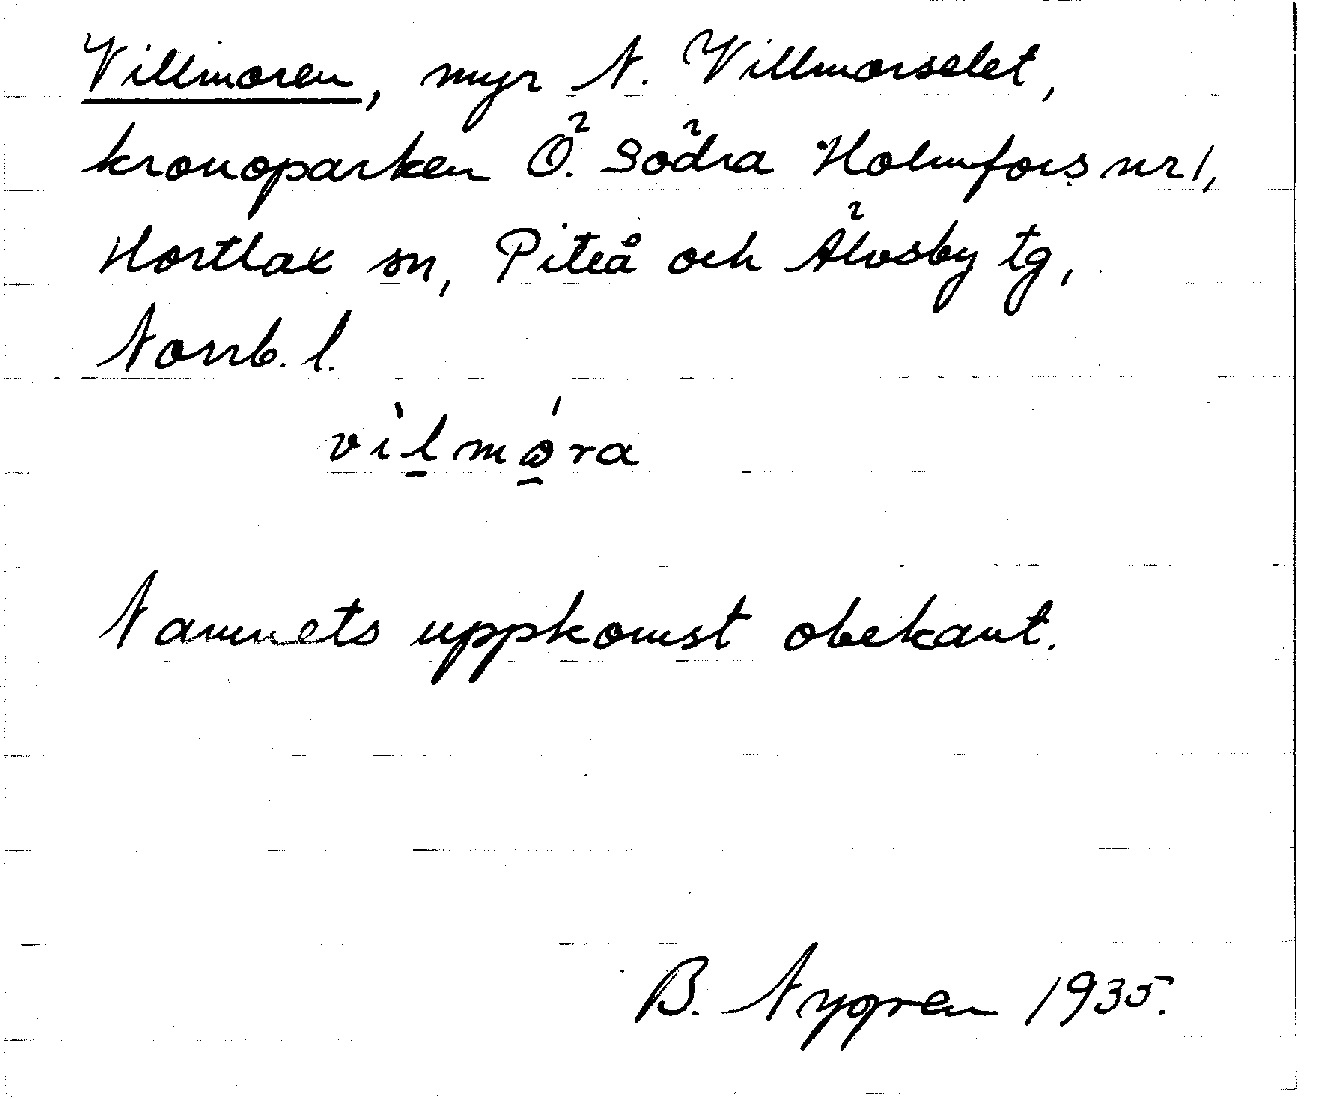 Villmoren, myr N. Villmorselet,
kronoparken Ö. Södra Holmfors nr 1,
Hortlax sn, Piteå och Älvsby tg,
Norrb. l.
vìlmǿra
Namnets uppkomst obekant.
B. Nygren 1935.